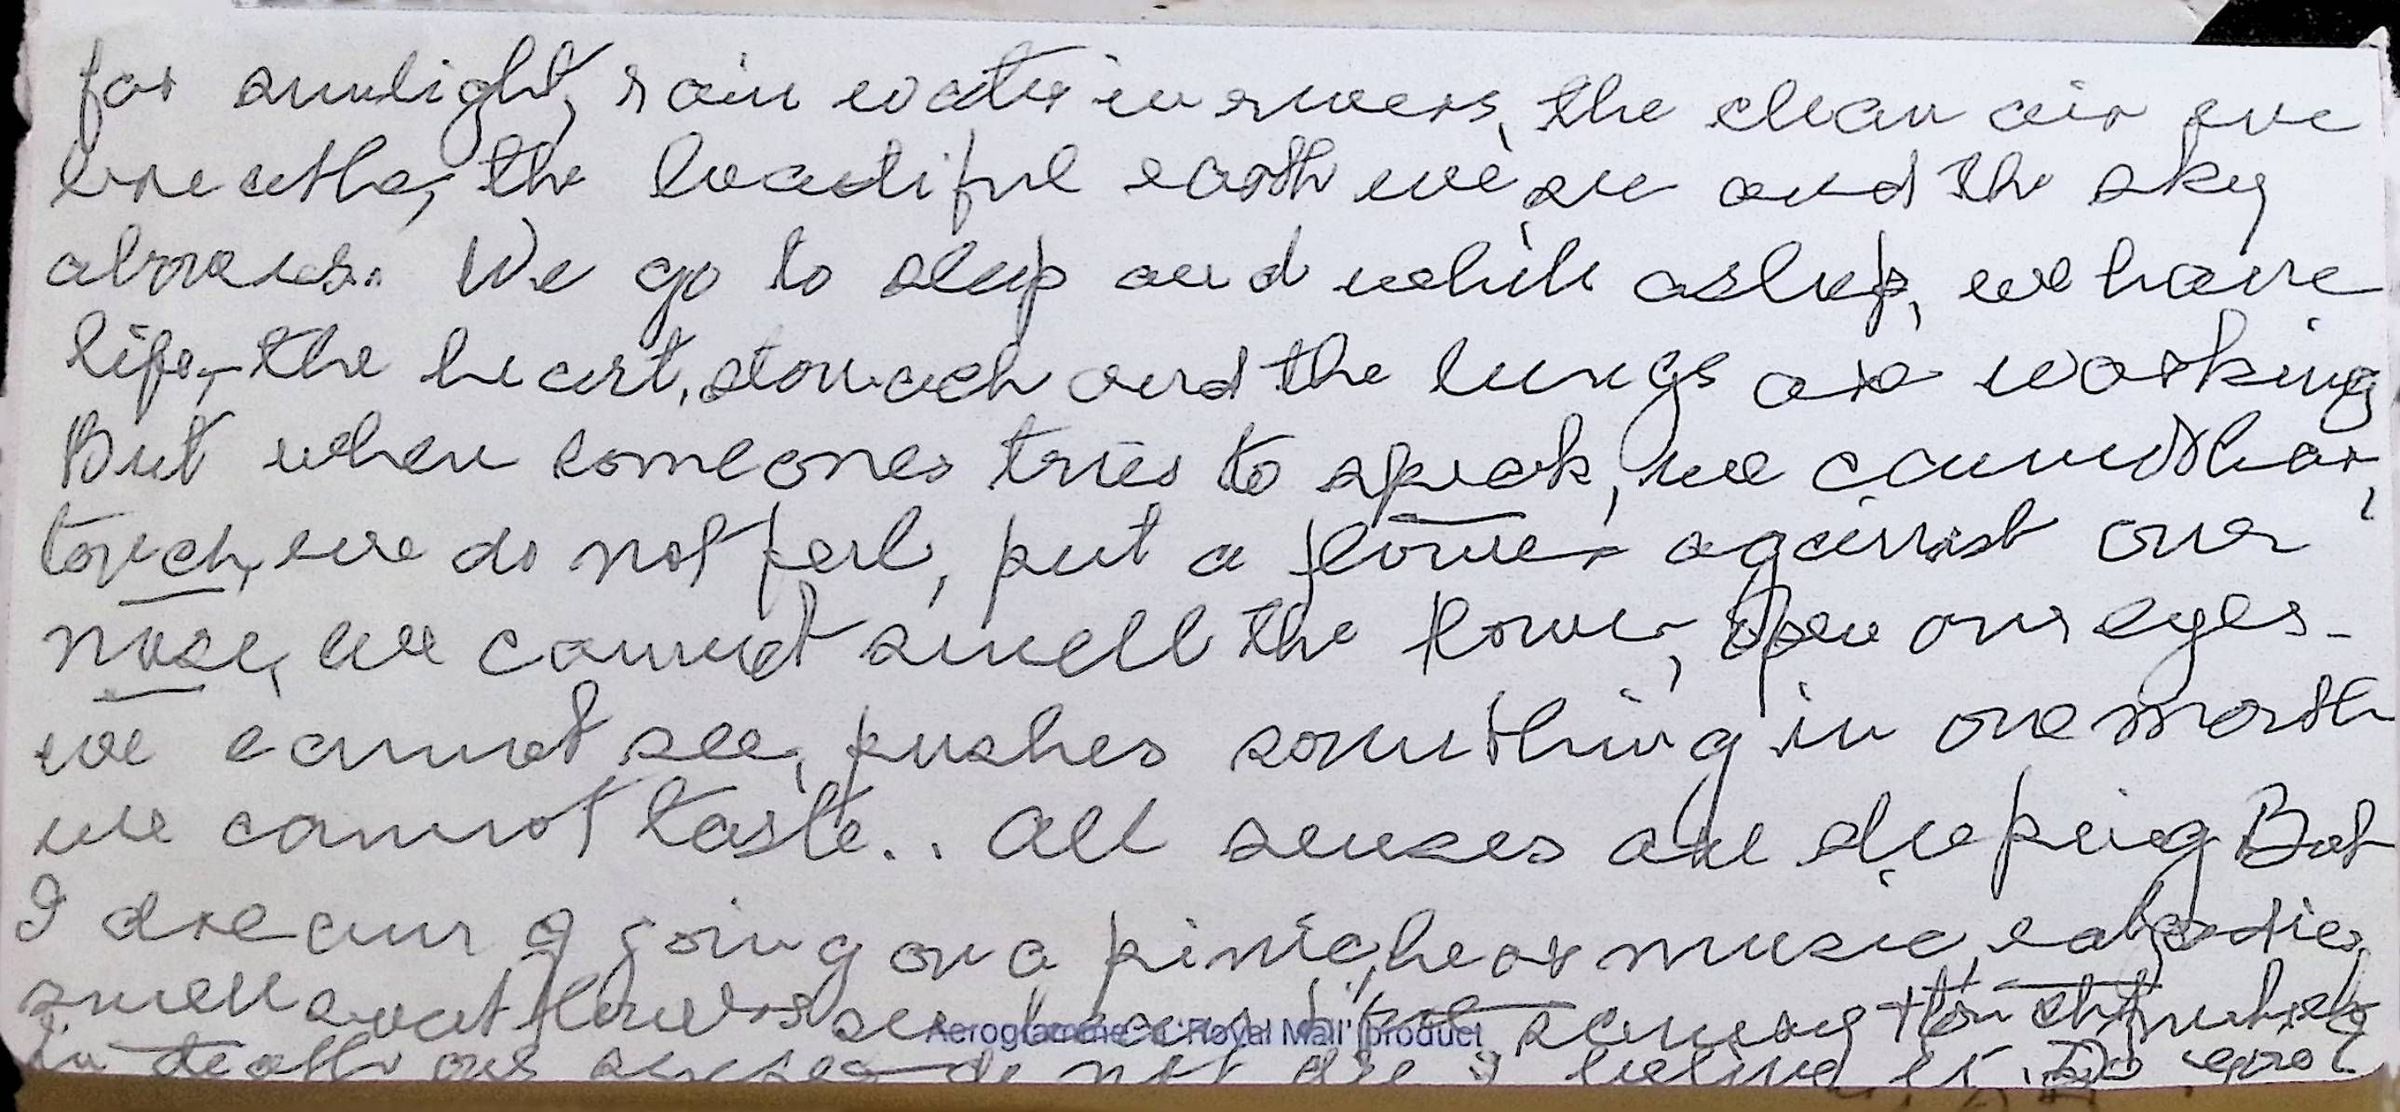 for sunlight, rain water in rivers, the clean air we
breathe, the beautiful earth we see and the sky
above us. We go to sleep and while asleep, we have
life, - the heart, stomach and the lungs are working
But when someones tries to speak, we cannot hear,
touch, we do not feel, put a flower against our
nose, we cannot smell the flower, open our eyes -
we cannot see, pushes something in our mouth
we cannot taste.. All senses are sleeping But
I dream of going on a picnic, hear music, eat
smell sweet flowers
Aerogramme - a 'Royal Mail' product
in death our senses do not die I believe it. Do you